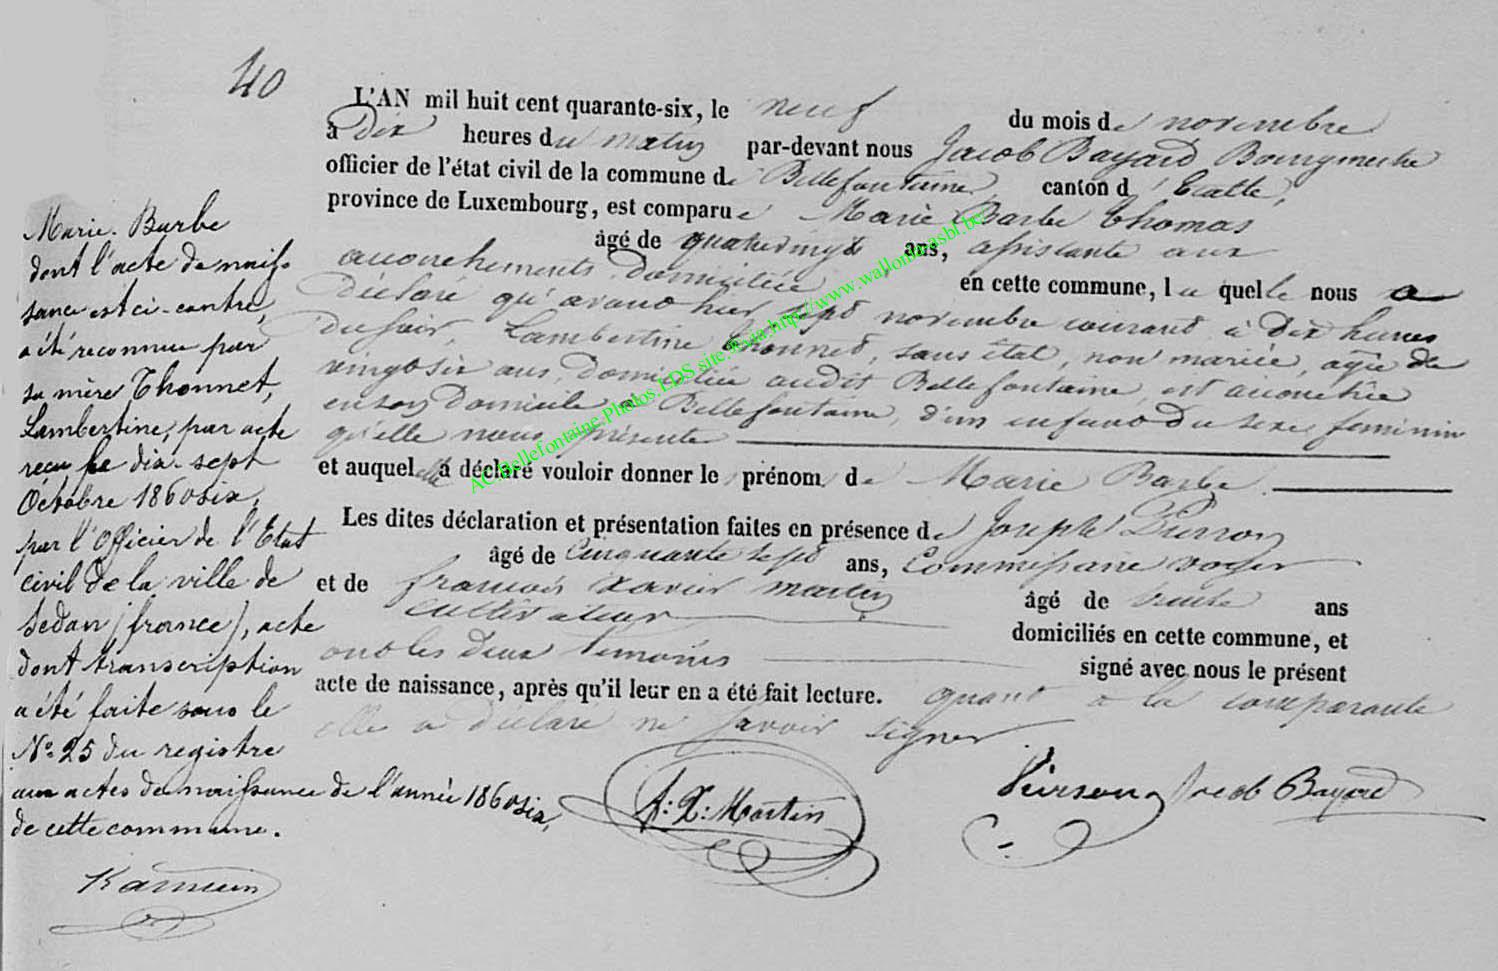 40
L'AN mil huit cent quarante-six, le neuf du mois de novembre
à Dix heures du matin par-devant nous Jacob Bayard Bourgmestre
officier de l'état civil de la commune de Bellefontaine, canton d'Etalle,
province de Luxembourg, est comparue Marie Barbe Thomas
âgé de quatrevingt ans, assistante aux
accouchements, domiciliée en cette commune, laquelle nous a
Déclaré qu'avant hier sept novembre courant à dix heures
du soir, Lambertine Thonnet, sans état, non mariée, agée de
vingt six ans, Domiciliée audit Bellefontaine, est accouchée
en son Domicile à Bellefontaine, d'un enfant du sexe feminin
qu'elle nous présente
et auquel elle a déclaré vouloir donner le prénom de Marie Barbe.
Les dites déclaration et présentation faites en présence de Joseph Pierson
âgé de Cinquante sept ans, Commissaire voyer
et de françois Xavier Martin âgé de trente ans
Cultivateur domiciliés en cette commune, et
ont les deux témoins signé avec nous le présent
acte de naissance, après qu'il leur en a été fait lecture. quant à la comparante
elle a déclaré ne savoir signer
f: X: Martin
Pierson
Jacob Bayard
Marie-Barbe
dont l'acte de nais-
sance est ci-contre,
a été reconnue par
sa mère Thonnet,
Lambertine, par acte
reçu le dix-sept
Octobre 1860six,
par l'Officier de l'Etat
civil de la ville de
Sedan (france), acte
dont transcription
a été faite sous le
No. 25 du registre
aux actes de naissance de l'année 1860six,
de cette commune.
AC.Bellefontaine.Photos.LDS.site.®.via.http://www.wallonia-asbl.be/